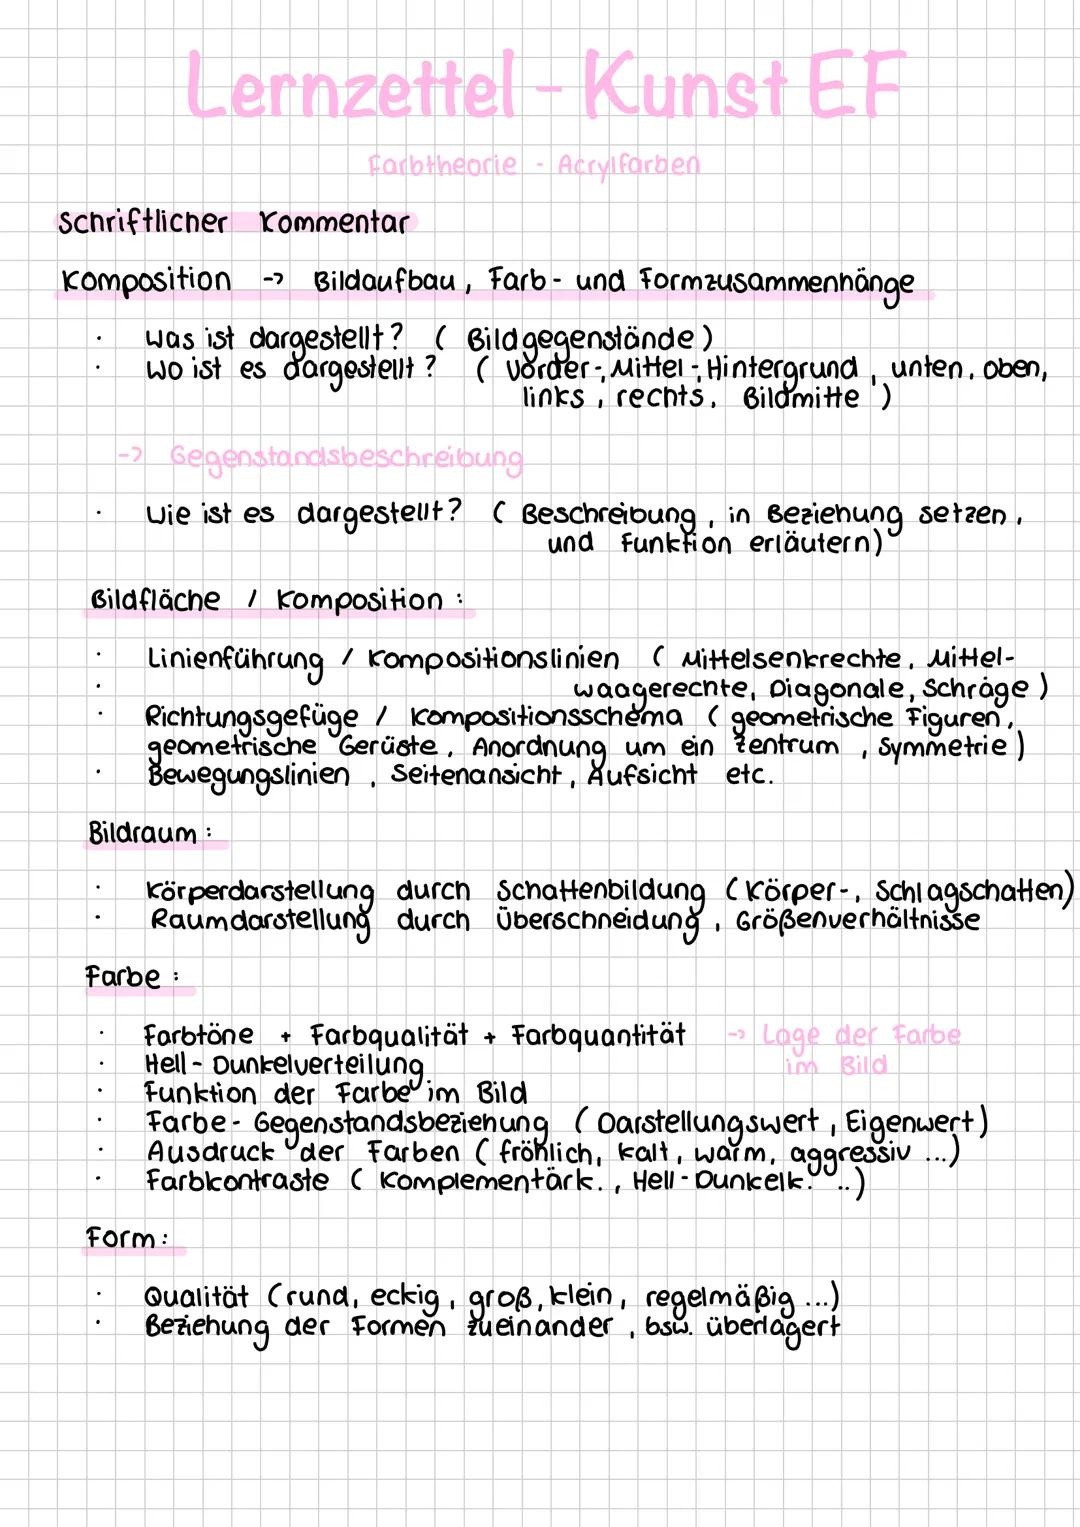 Lernzettel - Kunst EF
Farbtheorie - Acrylfarben
Schriftlicher Kommentar
Komposition -> Bildaufbau, Farb- und Formzusammenhänge
· Was ist dargestellt? ( Bildgegenstände )
· Wo ist es dargestellt? ( Vorder-, Mittel-, Hintergrund, unten, oben,
links, rechts, Bildmitte )
-> Gegenstandsbeschreibung
· Wie ist es dargestellt? ( Beschreibung, in Beziehung setzen,
und Funktion erläutern)
Bildfläche / Komposition :
· Linienführung / Kompositionslinien ( Mittelsenkrechte, Mittel-
· waagerechte, Diagonale, Schräge )
· Richtungsgefüge / Kompositionsschema ( geometrische Figuren,
geometrische Gerüste, Anordnung um ein Zentrum, Symmetrie )
· Bewegungslinien, Seitenansicht, Aufsicht etc.
Bildraum :
· Körperdarstellung durch Schattenbildung ( Körper-, Schlagschatten)
· Raumdarstellung durch Überschneidung, Größenverhältnisse
Farbe :
· Farbtöne + Farbqualität + Farbquantität -> Lage der Farbe
im Bild
· Hell - Dunkelverteilung
· Funktion der Farbe im Bild
· Farbe - Gegenstandsbeziehung ( Darstellungswert, Eigenwert)
· Ausdruck der Farben ( fröhlich, kalt, warm, aggressiv ...)
· Farbkontraste ( Komplementärk., Hell - Dunkelk. ..)
Form :
· Qualität ( rund, eckig, groß, klein, regelmäßig ...)
· Beziehung der Formen zueinander, bsw. überlagert